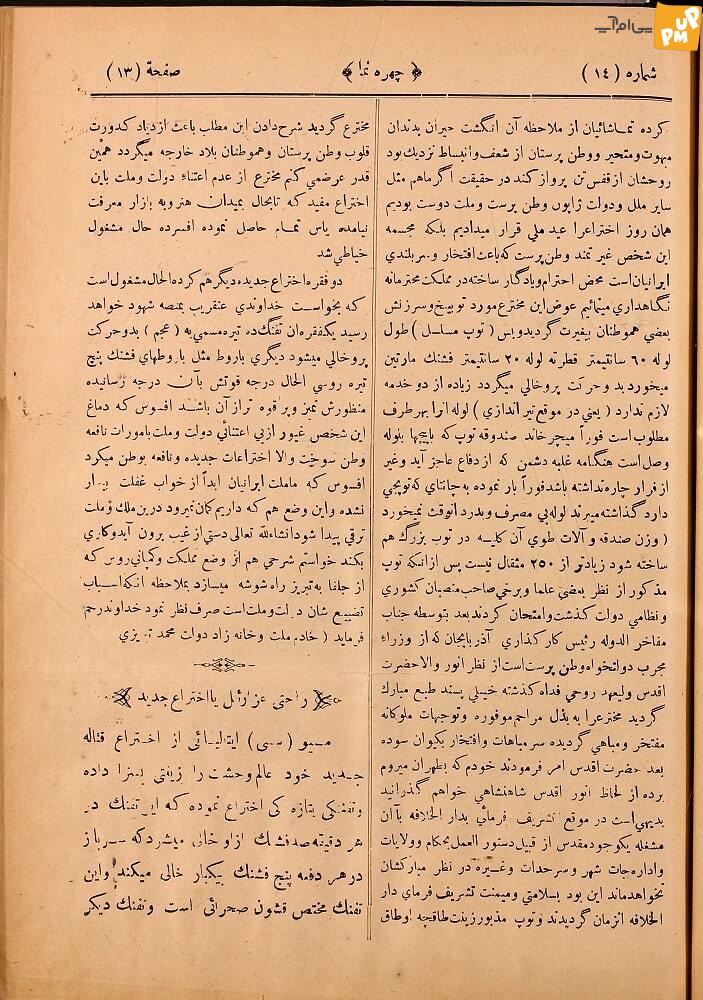 پی‌ام‌آپ
UP
PM
شماره (١٤)
﴿ چهره نما ﴾
صفحة (١٣)
کرده تماشائیان از ملاحظه آن انگشت حیران بدندان
مبهوت ومتحیر ووطن پرستان از شعف وانبساط نزدیك بود
روحشان از قفس تن پرواز کند در حقیقت اگر ماهم مثل
سایر ملل ودولت ژاپون وطن پرست وملت دوست بودیم
همان روز اختراعرا عید ملی قرار میدادیم بلکه مجسمه
این شخص غیرتمند وطن پرست که باعث افتخار وسربلندی
ایرانیان است محض احترام ویادگار ساخته در مملکت محترمانه
نگاهداری مینمائیم عوض این مخترع مورد توبیخ وسرزنش
بعضی هموطنان بیغیرت گردید وبس ( توپ مسلسل ) طول
لوله ٦٠ سانتیمتر قطر ته لوله ٢٠ سانتیمتر فشنك مارتین
میخورد بد وحرکت پر وخالی میگردد زیاده از دو خدمه
لازم ندارد ( یعنی در موقع تیر اندازی ) لوله اترا بهر طرف
مطلوب است فوراً میچرخاند صندوقه توپ که باپیچها بلوله
وصل است هنگامه غلبه دشمن که از دفاع عاجز آید وغیر
از فرار چاره نداشته باشد فوراً بار نموده به چانتای که توپچی
دارد گذاشته میبرند لوله بی مصرف وبدرد آنوقت نمیخورد
( وزن صندقه وآلات طوی آن کلیه در توپ بزرك هم
ساخته شود زیادتر از ٢٥٠ مثقال نیست پس از آنکه توپ
مذکور از نظر بعضی علما وبرخی صاحب منصبان کشوری
ونظامی دولت گذشت وامتحان کردند بعد بتوسطه جناب
مفاخر الدوله رئیس کارگذاری آذربایجان که از وزراء
مجرب دولتخواه وطن پرست است از نظر انور والاحضرت
اقدس ولیعهد روحی فداه گذشته خیلی پسند طبع مبارك
گردید مخترعرا به بذل مراحم موفوره وتوجهات ملوکانه
مفتخر ومباهی گردیده سر مباهات وافتخار بکیوان سوده
بعد حضرت اقدس امر فرمودند خودم که بطهران میروم
برده از لحاظ انور اقدس شاهنشاهی خواهم گذرانید
بدیهی است در موقع تشریف فرمائی بدار الخلافه باآن
مشغله یکوجود مقدس از قبیل دستور العمل بحکام وولایات
واداره جات شهر وسرحدات وغیره در نظر مبارکشان
نخواهد ماند این بود بسلامتی ومیمنت تشریف فرمای دار
الخلافه آنزمان گردیدند وتوپ مذبور زینت طاقچه اوطاق
مخترع گردید شرح دادن این مطلب باعث ازدیاد کدورت
قلوب وطن پرستان وهموطنان بلاد خارجه میگردد همین
قدر عرض می کنم مخترع از عدم اعتناء دولت وملت باین
اختراع مفید که تابحال بمیدان هنر وبه بازار معرفت
نیامده یاس تمام حاصل نموده افسرده حال مشغول
خیاطی شد
دو فقره اختراع جدیده دیگر هم کرده الحال مشغول است
که بخواست خداوندی عنقریب بمنصه شهود خواهد
رسید یکفقره آن تفنك ده تیره مسمی به ( عجم ) بدو حرکت
پر وخالی میشود دیگری باروط مثل باروطهای فشنك پنج
تیره روسی الحال درجه قوتش بآن درجه رسانیده
منظورش تمیز وپر قوه تر از آن باشد افسوس که دماغ
این شخص غیور از بی اعتنائی دولت وملت بامورات نافعه
وطن سوخت والا اختراعات جدیده ونافعه بوطن میکرد
افسوس که ماملت ایرانیان ابداً از خواب غفلت بیدار
نشده واین وضع هم که داریم گمان نمیرود در بن ملك وملت
ترقی پیدا شود انشاءالله تعالی دستی از غیب برون آید وکاری
بکند خواستم شرحی هم از وضع مملکت وکمپانی روس که
از جلفا به تبریز راه شوشه میسازد بملاحظه آنکه اسباب
تضییع شان دولت وملت است صرف نظر نمود خداوند رحم
فرماید ( خادم ملت وخانه زاد دولت محمد تبریزی
راحتی عزرائیل یا اختراع جدید
مسیو (سی) ایتالیائی از اختراع قتاله
جدید خود عالم وحشت را زینتی بسزا داده
وتفنگی بتازه کی اختراع نموده که این تفنك در
هر دقیقه صد فشنك از او خالی میشود که سرباز
در هر دفعه پنج فشنك بیکبار خالی میکند واین
تفنك مختص قشون صحرائی است وتفنك دیگر